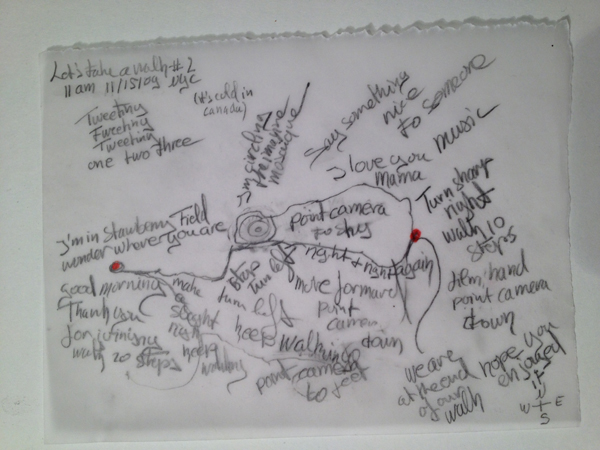 Let's take a walk #2
11 am 11/15/09 NYC
Tweeting
Tweeting
Tweeting
one two three
(it's cold in
canada)
I'm circling
the imagine
mosaique
Say something
nice
to someone
I love you
Mama
music
I'm in Stawberry Field
wonder where you are
point camera
to sky
right + right again
Turn sharp
right
walk 10
steps
film hand
point camera
down
good morning
Thank you
for joining
walk 20 steps
make
a
slight
right
keep
walking
Stop
Turn left
turn left
keep walking
move forward
point
camera
down
point camera
to feet
we are
at the end
of our
walk
hope you
enjoyed
it
N
W E
S